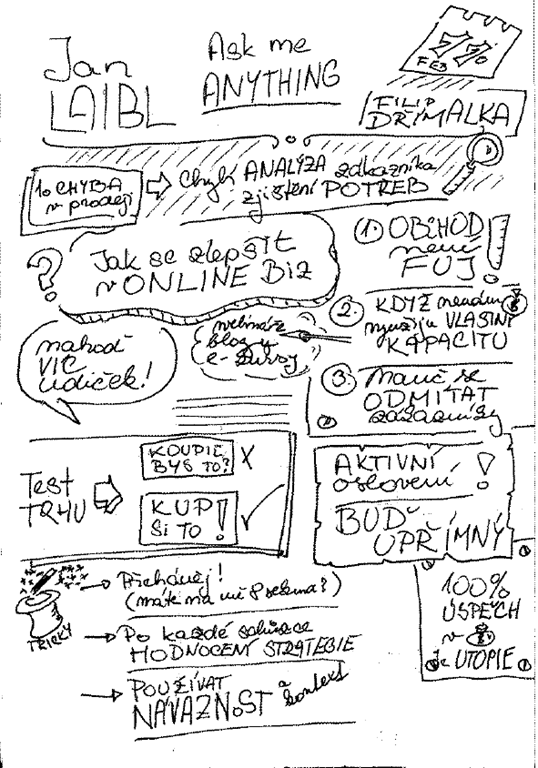 Jan
LAIBL
Ask me
ANYTHING
FEB
FILIP
DŘÍMALKA
1. CHYBA
v prodeji
Chybí ANALÝZA zákazníka
zjištění POTŘEB
?
Jak se zlepšit
v ONLINE BIZ
1. OBCHOD
není
FUJ!
2. KDYŽ nemám $
využiju VLASTNÍ
KAPACITU
nahoď
VÍC
udiček!
webináře
blogy
e-kurzy
3. Nauč se
ODMÍTAT
zákazníky
Test
TRHU
KOUPIL
BYS TO?
X
KUP
SI TO!
AKTIVNÍ
oslovení!
BUĎ
UPŘÍMNÝ
Přeháněj!
(máte na mě 8 sekund?)
TRICKY
Po každé schůzce
HODNOCENÍ STRATEGIE
POUŽÍVAT
NÁVAZNOST a kontext
100%
ÚSPĚCH
v
Je UTOPIE